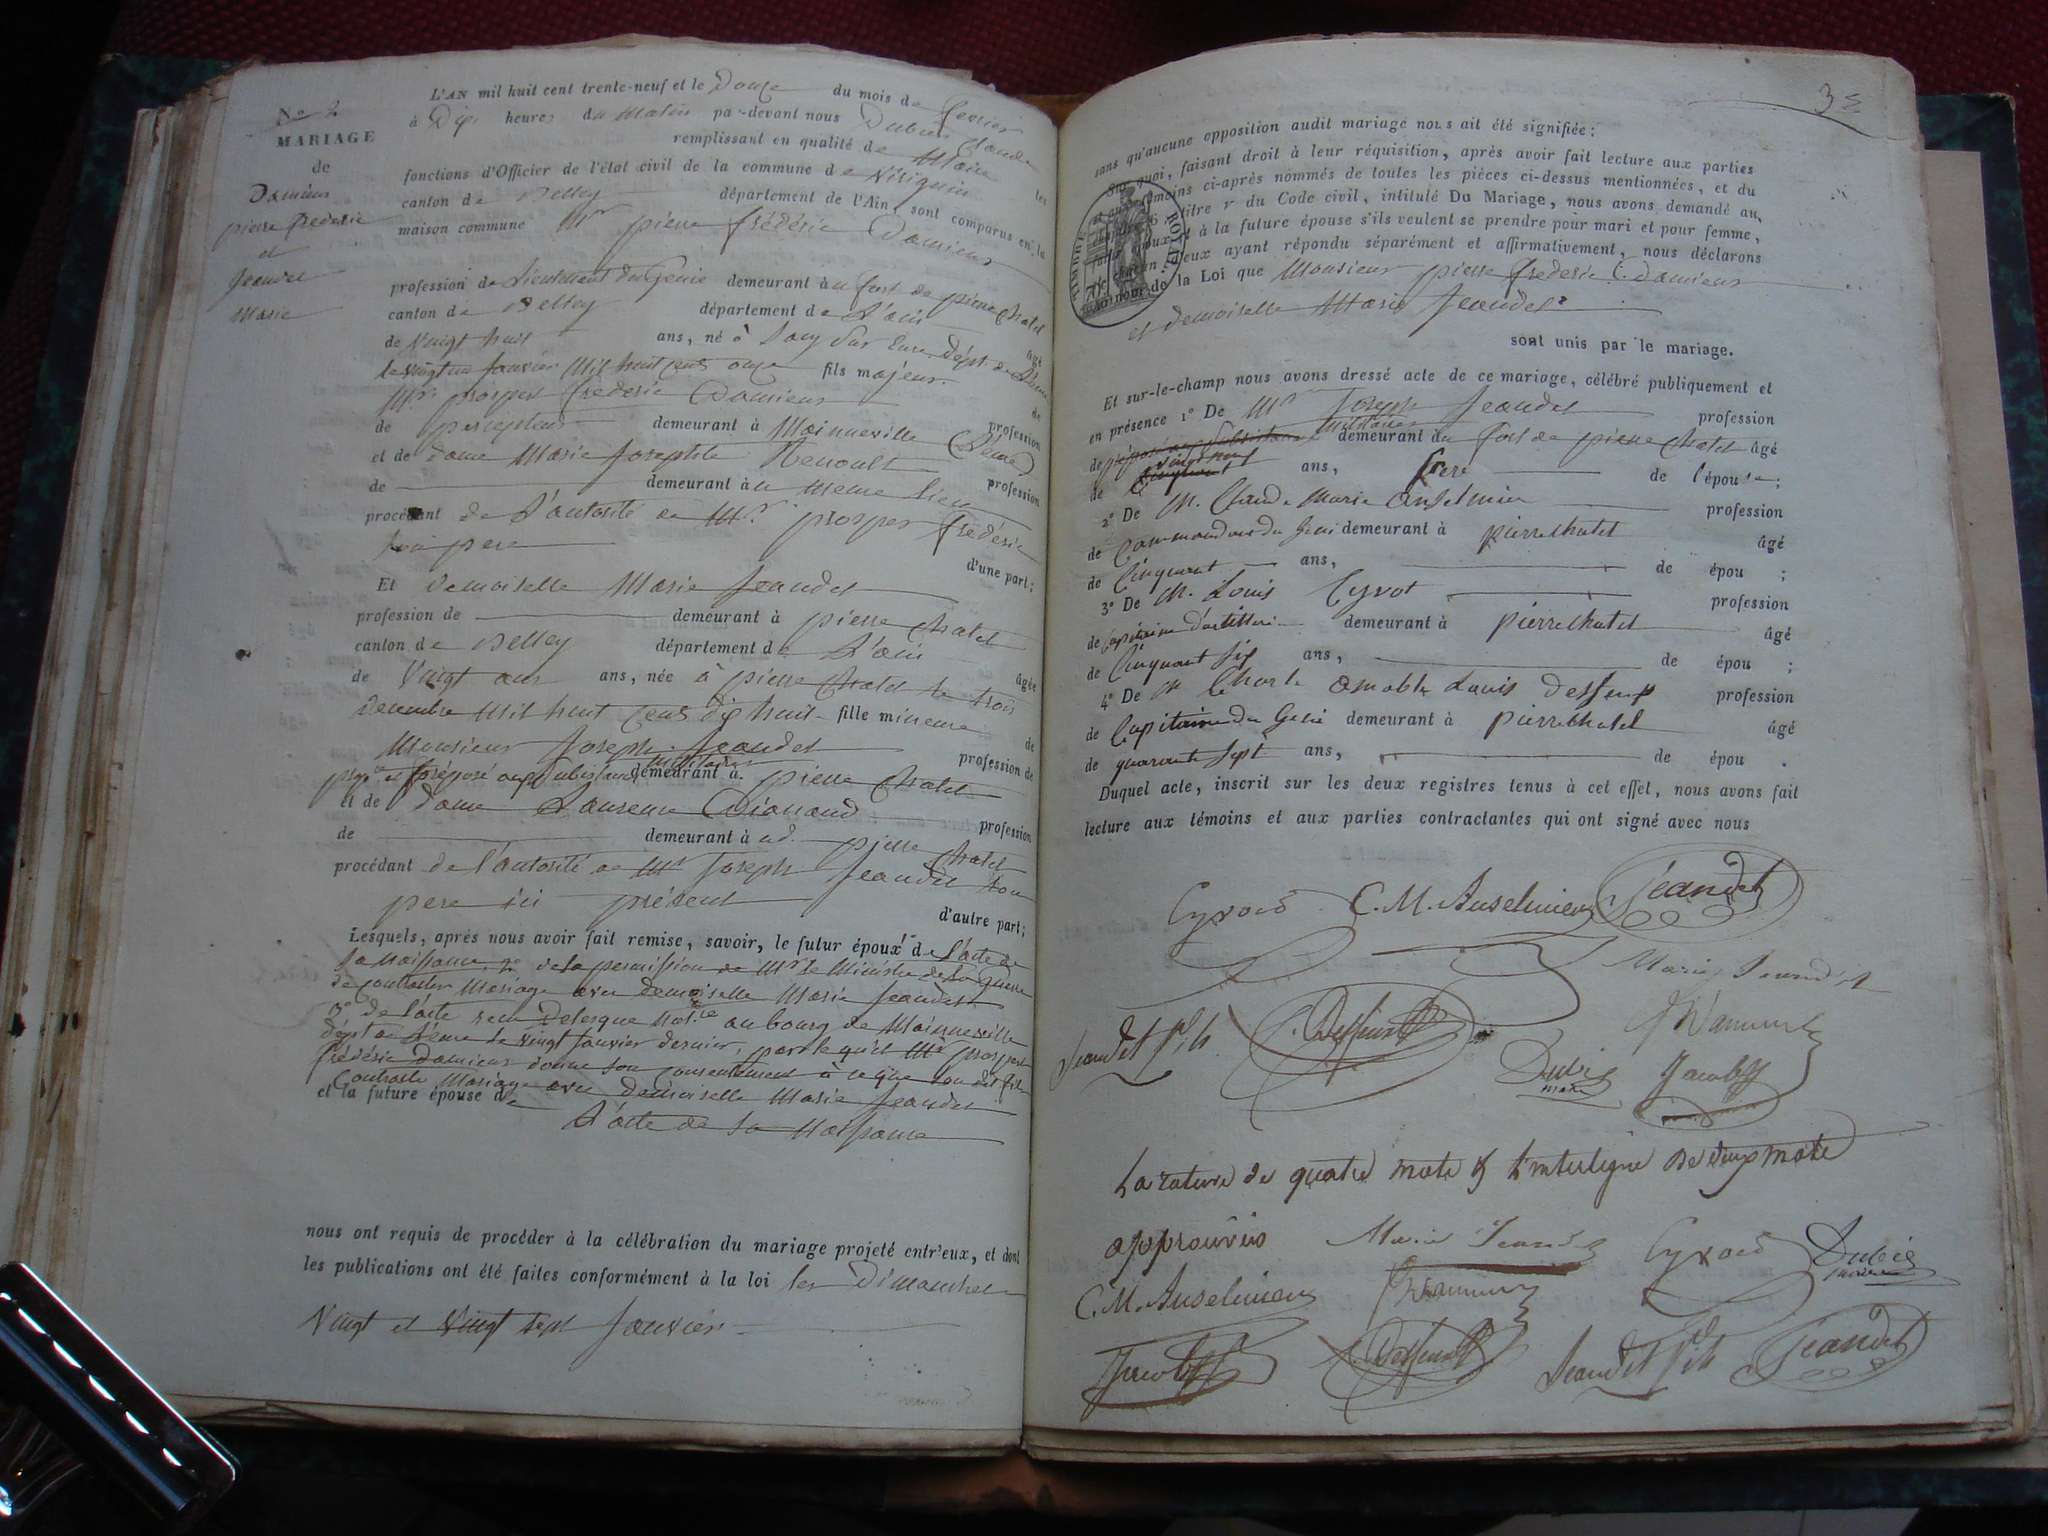 N° 2
MARIAGE
de
Damiens
pierre frederic
et
Jeandet
Marie
L'AN mil huit cent trente-neuf et le Douze du mois de fevrier
à Dix heures du Matin par-devant nous Dubier Claude
remplissant en qualité de Maire les
fonctions d'Officier de l'état civil de la commune de Virignin
canton de Belley département de l'Ain, sont comparus en la
maison commune Mr pierre frédéric Damiens
profession de Lieutenant du Genie demeurant au fort de pierre Chatel
canton de Belley département de L'ain âgé
de Vingt huit ans, né à Sur Eure, Dépt de L'Eure
le vingt un Janvier Mil huit cens onze fils majeur de
Mr prosper frederic Damiens profession
de percepteur demeurant à Mainneville (L'Eure)
et de dame Marie Josephte Renoult profession
de demeurant au meme lieu
procédant de L'autorité de Mr. prosper frédéric
son pere d'une part;
Et demoiselle Marie Jeandet
profession de demeurant à pierre Chatel
canton de Belley département de L'ain âgée
de Vingt ans ans, née à pierre Chatel le trois
Decembre Mil huit Cens dix huit fille mineure de
Monsieur Joseph Jeandet profession de
et préposé aux Subsistances militaires demeurant à pierre Chatel
et de dame Laurence profession
de demeurant à ud. pierre Chatel
procédant de l'autorité de Mr Joseph Jeandet son
pere ici présent d'autre part;
Lesquels, après nous avoir fait remise, savoir, le futur époux de L'acte de
sa naissance, 2° de la permission de Mr le Ministre de la Guerre
de contracter Mariage avec demoiselle Marie Jeandet
3° de l'acte recu Delesque Not.re au bourg de Mainneville
dépt de L'Eure le vingt Janvier dernier, par lequel Mr prosper
frédéric Damiens donne son consentement à ce que son dit fils
Contracte Mariage avec demoiselle Marie Jeandet
et la future épouse de
L'acte de sa Naissance
nous ont requis de procéder à la célébration du mariage projeté entr'eux, et dont
les publications ont été faites conformément à la loi les Dimanches
Vingt et Vingt sept Janvier
3
sans qu'aucune opposition audit mariage nous ait été signifiée;
Sur quoi, faisant droit à leur réquisition, après avoir fait lecture aux parties
et aux témoins ci-après nommés de toutes les pièces ci-dessus mentionnées, et du
chapitre 6 titre V du Code civil, intitulé Du Mariage, nous avons demandé au
futur époux et à la future épouse s'ils veulent se prendre pour mari et pour femme,
chacun d'eux ayant répondu séparément et affirmativement, nous déclarons
au nom de la Loi que Monsieur pierre frederic Damiens
et demoiselle Marie Jeandet
sont unis par le mariage.
TIMBRE ROYAL
70 c
Et sur-le-champ nous avons dressé acte de ce mariage, célébré publiquement et
en présence 1° De Mr Joseph Jeandet profession
de préposé aux Subsistances militaires demeurant au fort de pierre Chatel âgé
de Cinquante vingt neuf ans, frere de l'épouse;
2° De M. Claude Marie Anselmier profession
de Commandant du Genie demeurant à pierrechatel âgé
de Cinquante ans, de épou ;
3° De M. Louis Cyvoct profession
de Capitaine d'artillerie demeurant à pierrechatel âgé
de Cinquante six ans, de épou ;
4° De M Charle amable Louis profession
de Capitaine du Genie demeurant à pierrechatel âgé
de quarante sept ans, de épou .
Duquel acte, inscrit sur les deux registres tenus à cet effet, nous avons fait
lecture aux témoins et aux parties contractantes qui ont signé avec nous
C. M. Anselmier Jeandet
Marie Jeandet
Jeandet fils
Dubier
maire
Jacoby
La rature de quatre mots & l'interligne de deux mots
approuvés Marie Jeandet Dubier
maire
C. M. Anselmier
Jacoby Jeandet fils Jeandet